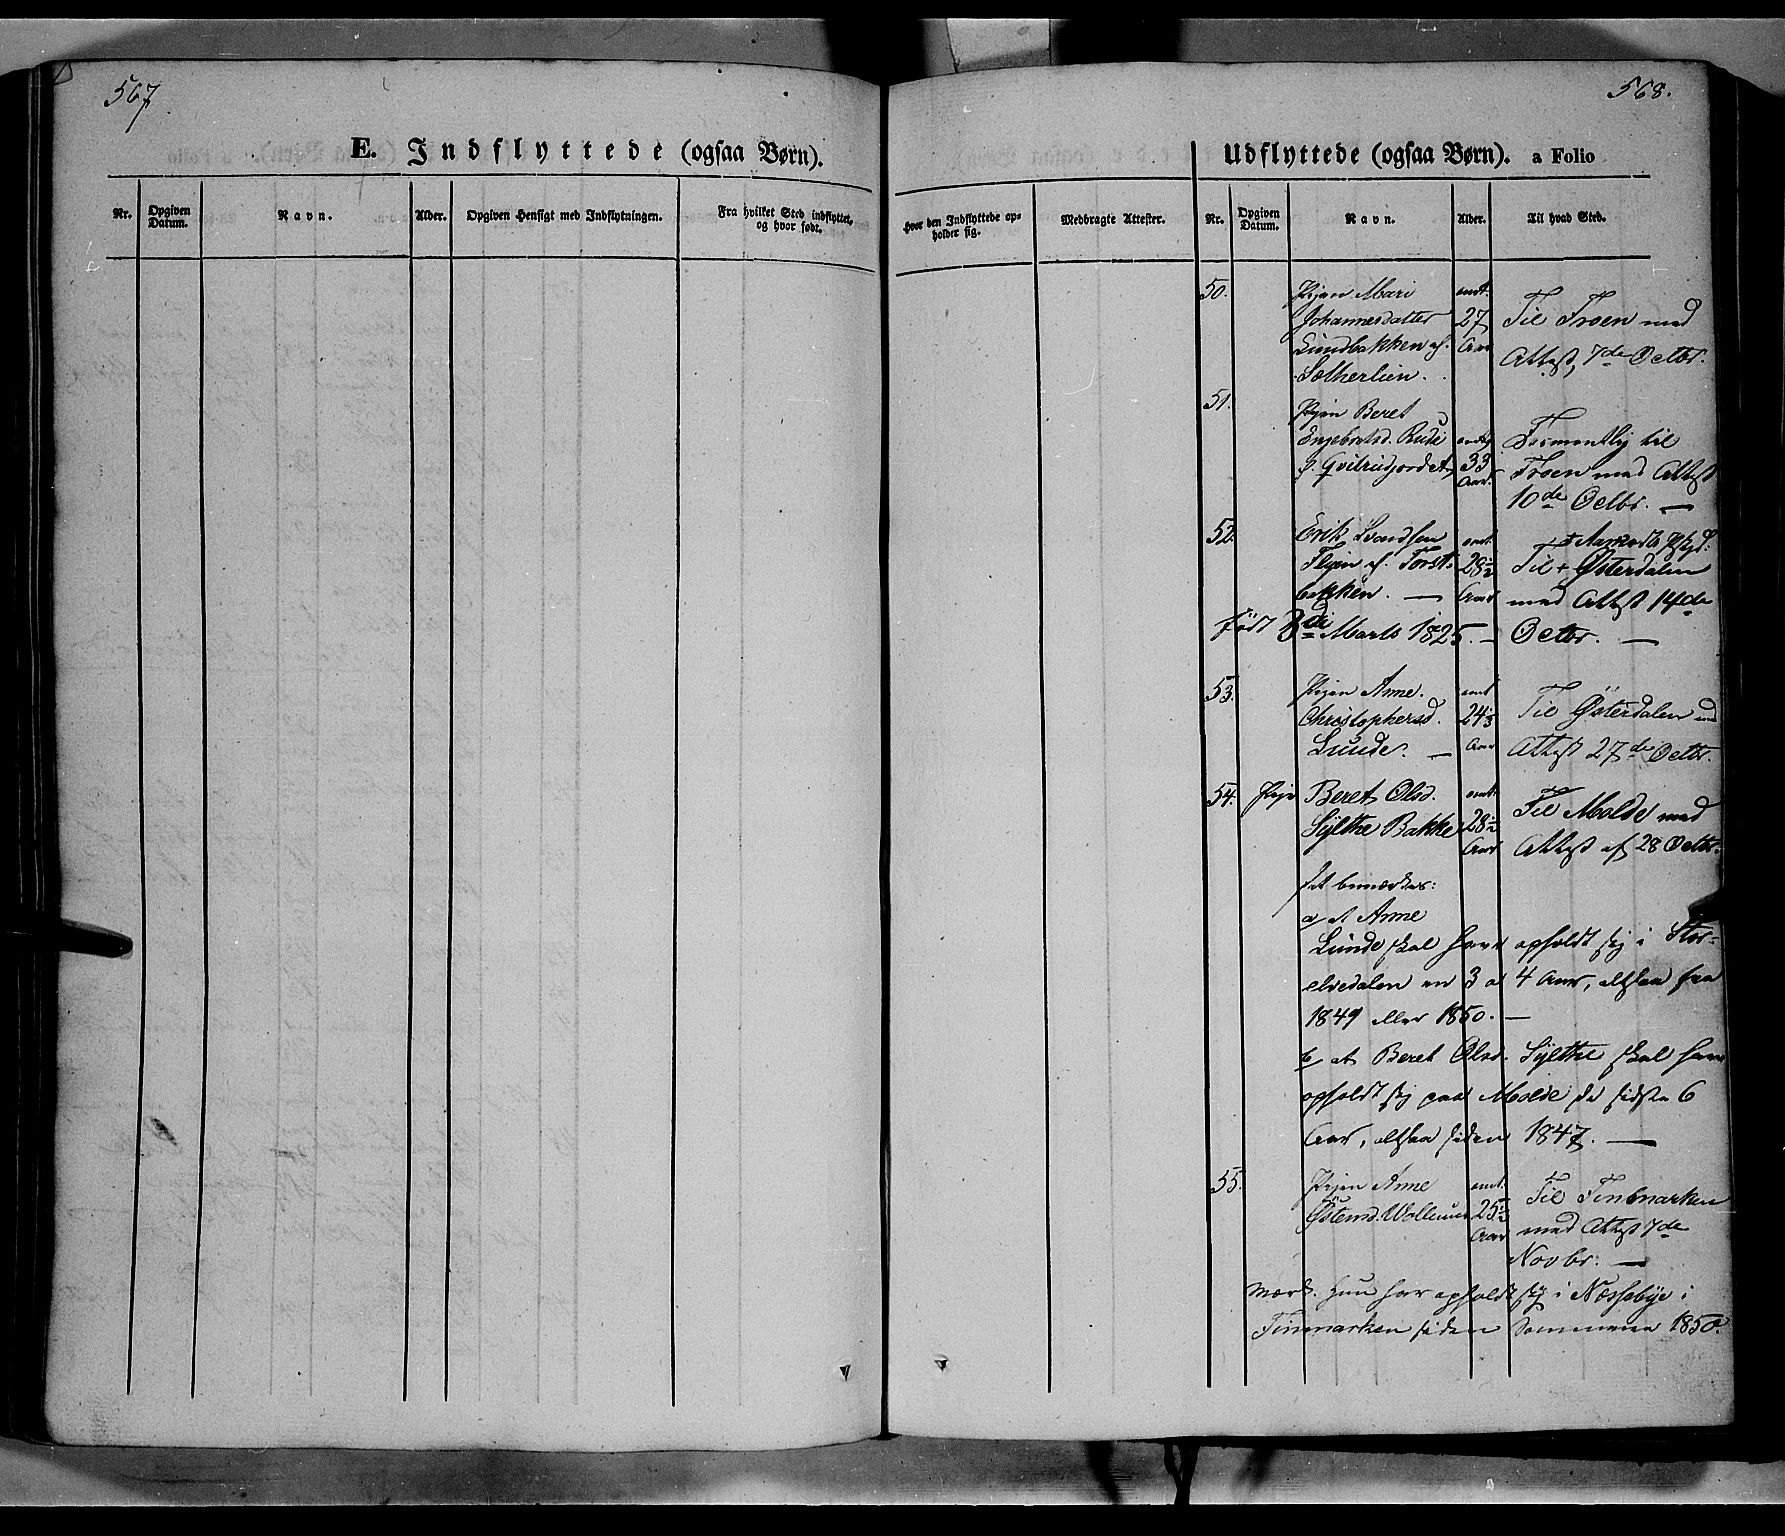 567
568.
E. Indflyttede (ogsaa Børn).
Udflyttede (ogsaa Børn). a Folio
Nr.
Opgiven Datum.
Navn.
Alder.
Opgiven Hensigt med Indflytningen.
Fra hvilket Sted indflyttet, og hvor født.
Hvor den Indflyttede opholder sig.
Medbragte Attester.
Nr.
Opgiven Datum.
Navn.
Alder.
Til hvad Sted.
50. Pigen Mari omt.
Johannesdatter 27 Til Froen med
Lundbakken af. Aar Attest, 7de Octbr.
Sølherlien.
51. Pigen Beret
Engebretsd. Rude omtr Formentlig til
f. Qvitrudjordet, 33 Froen med Attest
Aar. 10de Octbr. —
52. Erik Svendsen omt.
Flyen af. Torst- 28½ Til + Østerdalen
bakken. — Aar med Attest 14de
født Marts 1825. — Octbr. —
53. Pigen Anne omt
Christophersd. 24⅓ Til Østerdalen md
Lunde. — Aar Attest 27de Octbr.
54. Pige Beret Olsd. omt. Til Molde med
Sylthe Bakke 28½ Aar Attest af 28 Octbr.
Det bemærkes:
a at Anne
Lunde skal have opholdt sig i Stor-
elvedalen en 3 a 4 Aar, altsaa fra
1849 eller 1850. —
b at Beret Olsd. Sylthe skal have
opholdt sig paa Molde de sidste 6
Aar, altsaa siden 1847. —
55. Pigen Anne omt. Til Finmarken
Østensd. Wollum 25½ med Attest 7de
Aar Novbr. —
Mærk. Hun har opholdt sig i Næsseby i
Finmarken siden Sommeren 1850.